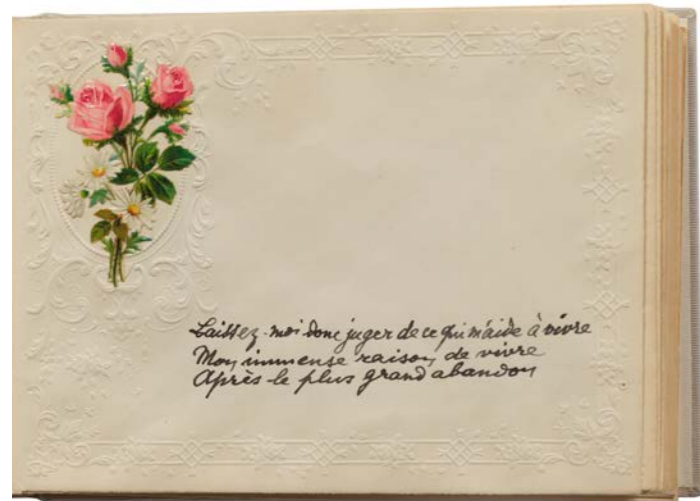 Laissez-moi donc juger de ce qui m'aide à vivre
Mon immense raison de vivre
Après le plus grand abandon